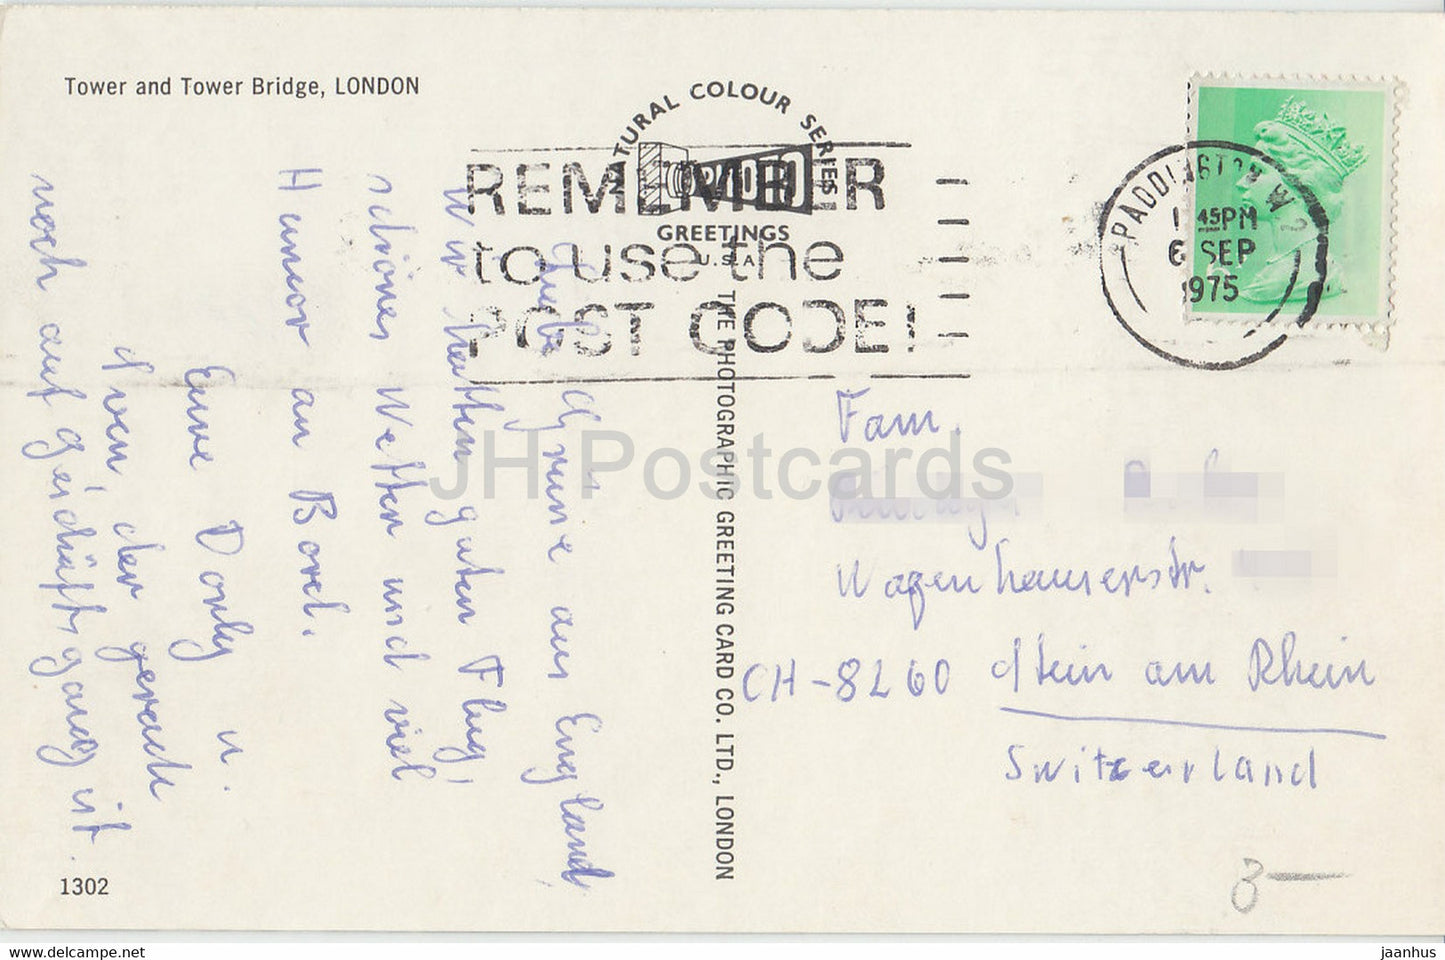 Tower and Tower Bridge, LONDON
NATURAL COLOUR SERIES
PHOTO
GREETINGS
U.S.A.
REMEMBER
to use the
POST CODE!
PADDINGTON
45PM
6 SEP
1975
Liebe Grüsse aus England,
Wir hatten guten Flug,
schönes Wetter und viel
Humor an Bord.
Eure Dorly u.
Sven, der gerade
noch auf geschäftsgang ist
THE PHOTOGRAPHIC GREETING CARD CO. LTD., LONDON
Fam.
Wagenhauserstr.
CH-8260 Stein am Rhein
Switzerland
1302
3—
JH Postcards
www.delcampe.net
jaanhus